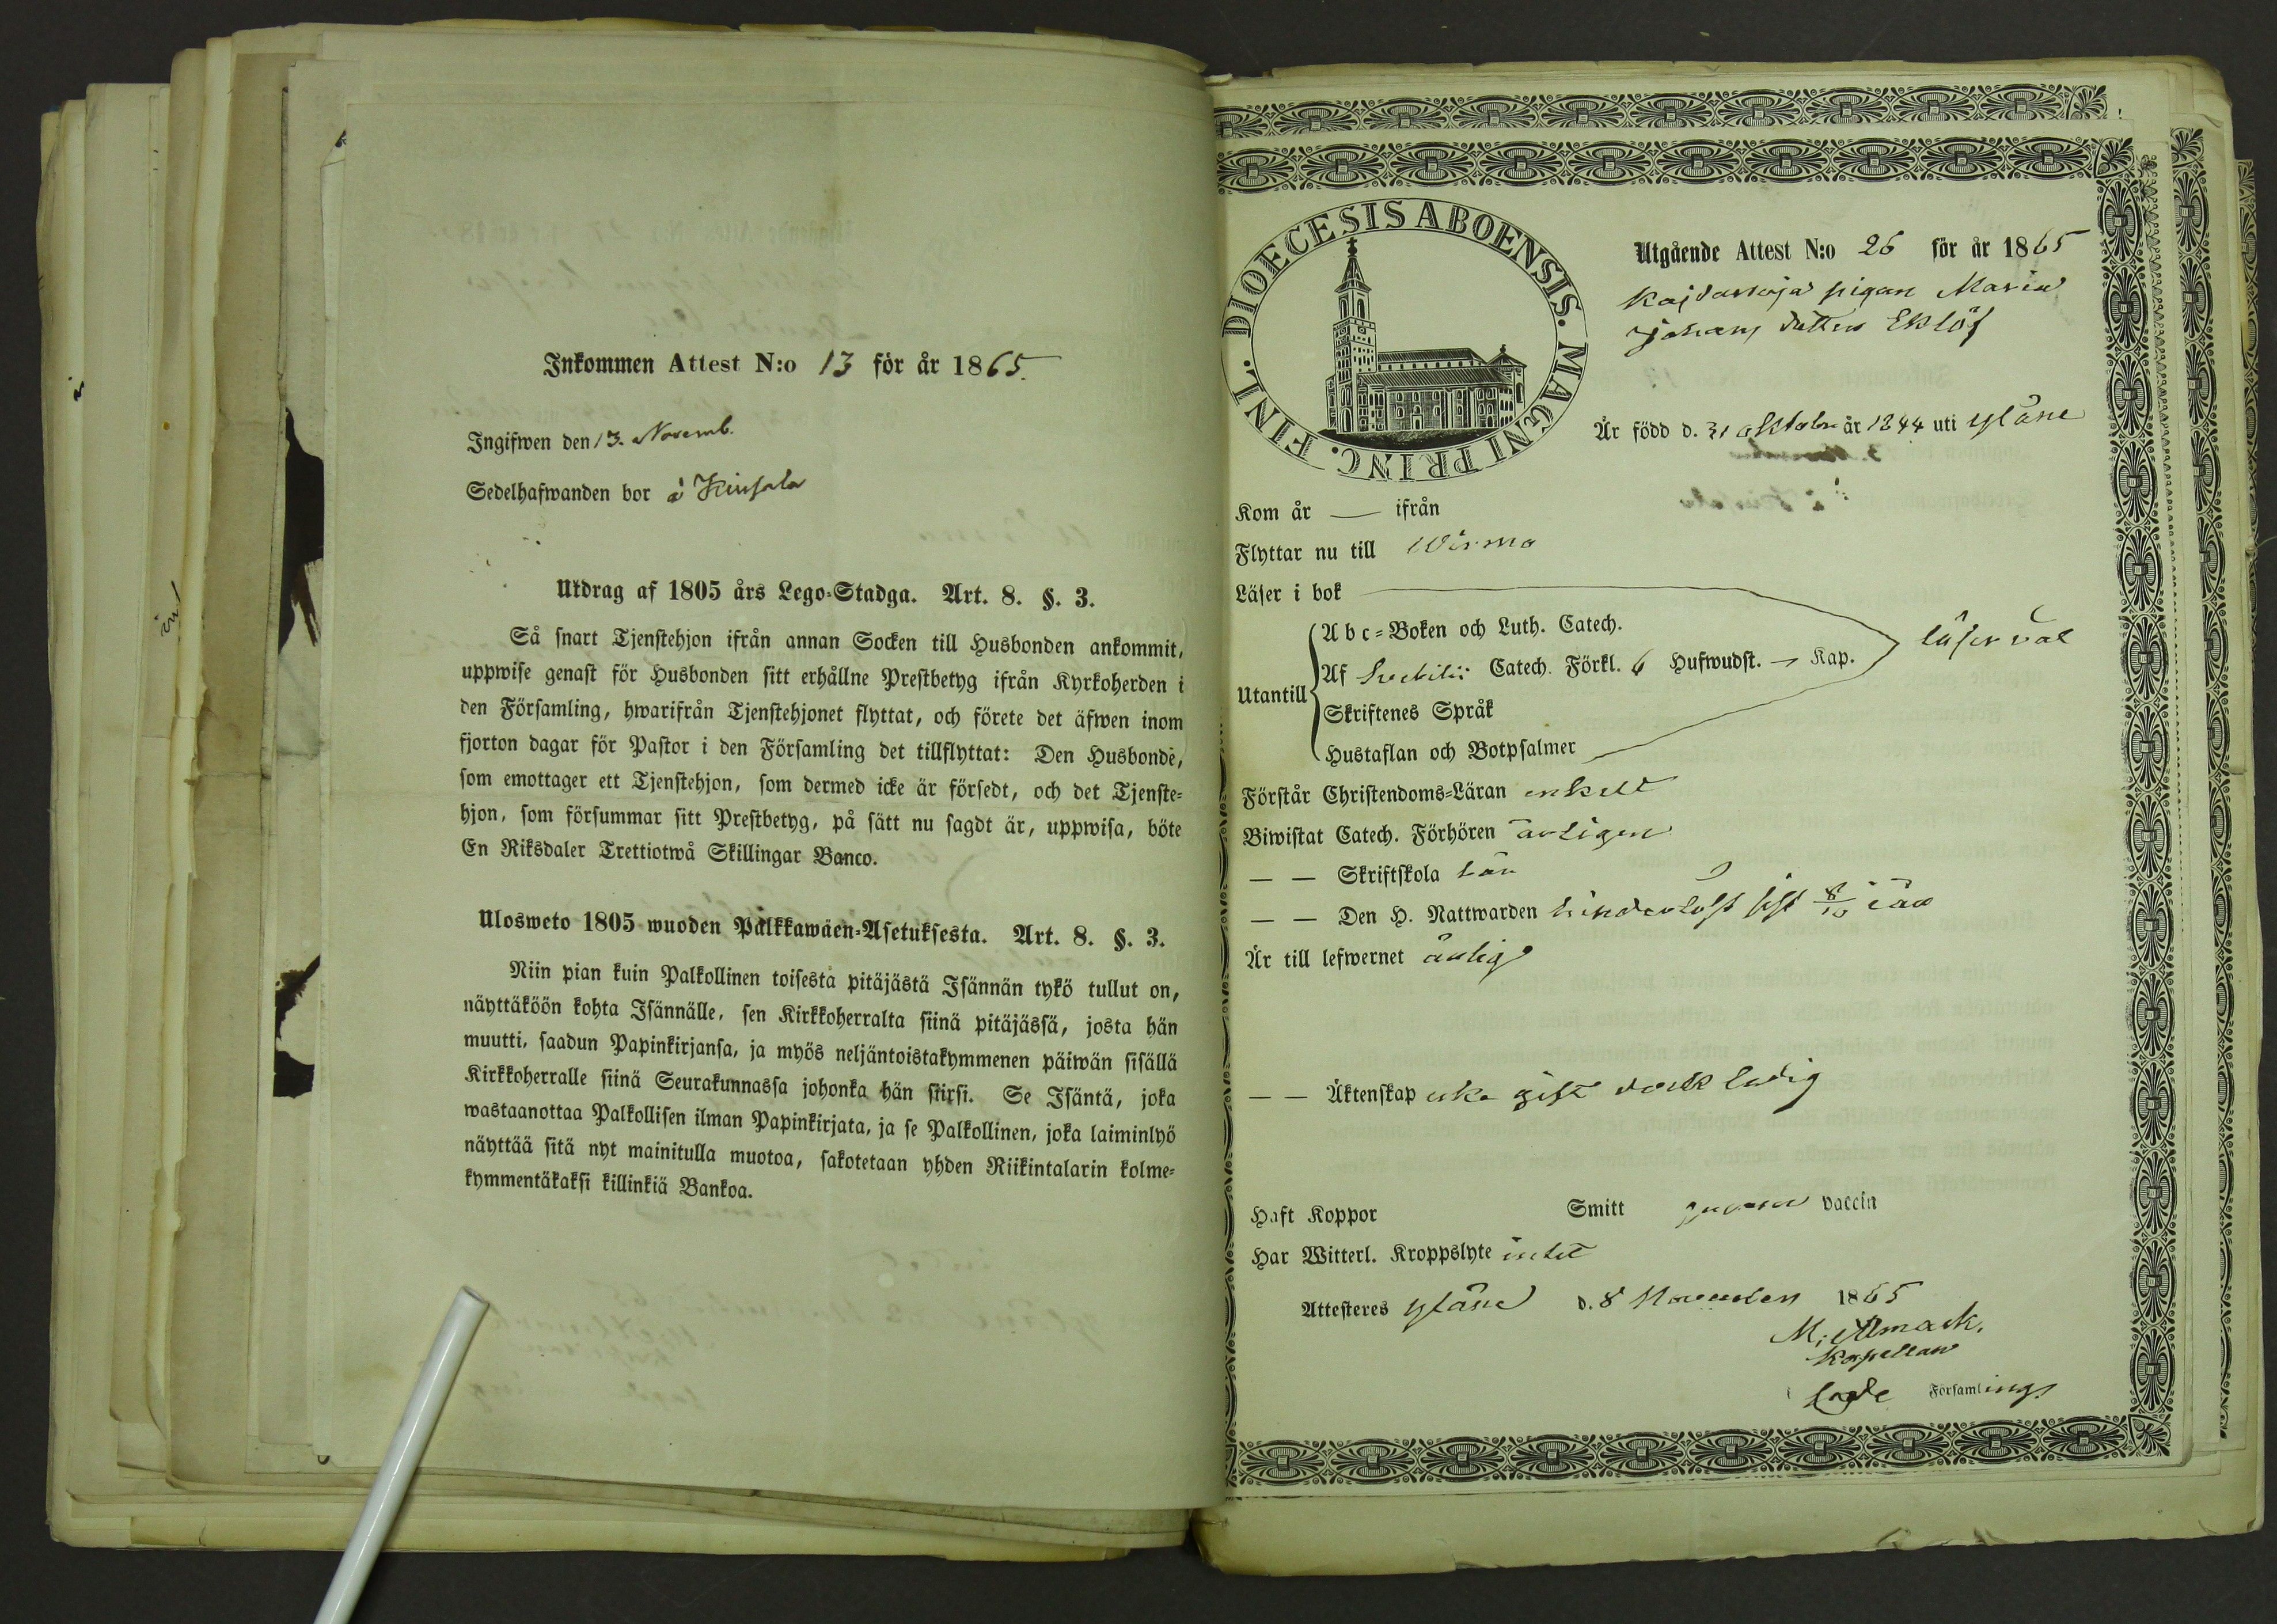 Inkommen Attest N:o 13 för år 1865.
Ingifwen den 13. Novemb.
Sedelhafwanden bor å
Utdrag af 1805 års Lego-Stadga. Art. 8. §. 3.
Så snart Tjenstehjon ifrån annan Socken till Husbonden ankommit,
uppwise genast för Husbonden sitt erhållne Prestbetyg ifrån Kyrkoherden i
den Församling, hwarifrån Tjenstehjonet flyttat, och förete det äfwen inom
fjorton dagar för Pastor i den Församling det tillflyttat: Den Husbonde,
som emottager ett Tjenstehjon, som dermed icke är försedt, och det Tjenste-
hjon, som försummar sitt Prestbetyg, på sätt nu sagdt är, uppwisa, böte
En Riksdaler Trettiotwå Skillingar Banco.
Ulosweto 1805 wuoden Palkkawäen-Asetuksesta. Art. 8. §. 3.
Niin pian kuin Palkollinen toisesta pitäjästä Isännän tykö tullut on,
näyttäköön kohta Isännälle, sen Kirkkoherralta siinä pitäjässä, josta hän
muutti, saadun Papinkirjansa, ja myös neljäntoistakymmenen päiwän sisällä
Kirkkoherralle siinä Seurakunnassa johonka hän siirsi. Se Isäntä, joka
wastaanottaa Palkollisen ilman Papinkirjata, ja se Palkollinen, joka laiminlyö
näyttää sitä nyt mainitulla muotoa, sakotetaan yhden Riikintalarin kolme-
kymmentäkaksi killinkiä Bankoa.
DIOECESIS ABOENSIS. MAGNI PRINC. FINL.
Utgående Attest N:o 26 för år 1865
pigan Maria
Johans dotter Eklöf
Är född d. 31 oktober år 1844 uti Yläne
Kom år — ifrån
Flyttar nu till Wirmo
Läser i bok
Abc-Boken och Luth. Catech.
läser väl
Utantill
Af Svebilii Catech. Förkl. 6 Hufwudst. — Kap.
Skriftenes Språk
Hustaflan och Botpsalmer
Förstår Christendoms-Läran enkelt
Biwistat Catech. Förhören årligen
— — Skriftskola
— — Den H. Nattwarden hinderlöst sist 8/10 i år
Är till lefwernet ärlig
— — Äktenskap icke gift dock ledig
Haft Koppor Smitt genom vaccin
Har Witterl. Kroppslyte intet
Attesteres Yläne d. 8 November 1865
Kapellan
Församlings